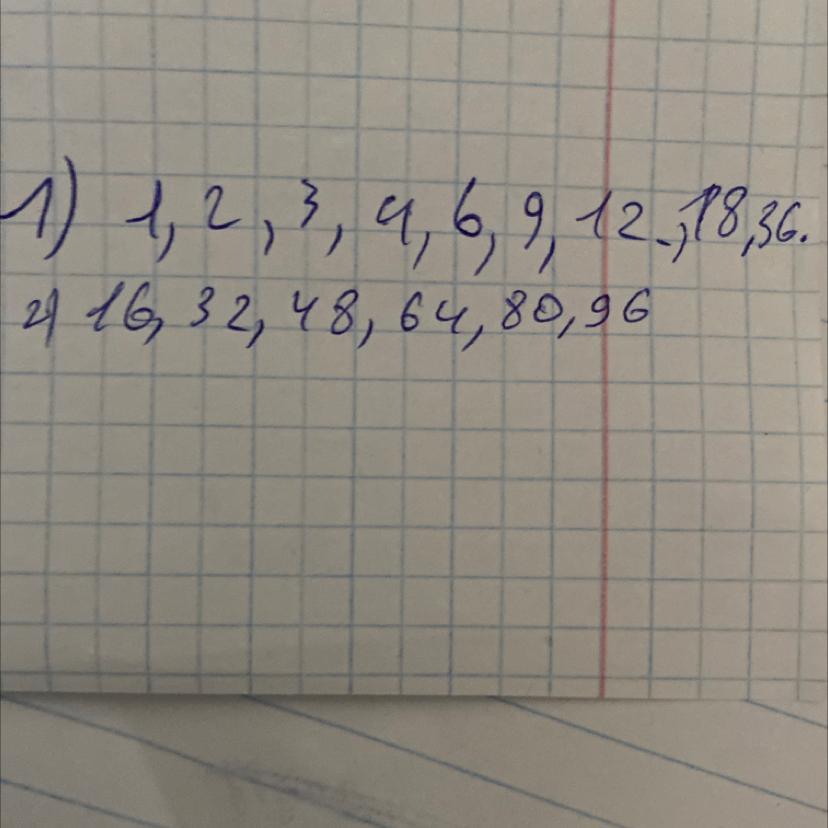 1) 1, 2, 3, 4, 6, 9, 12, 18, 36.
2) 16, 32, 48, 64, 80, 96